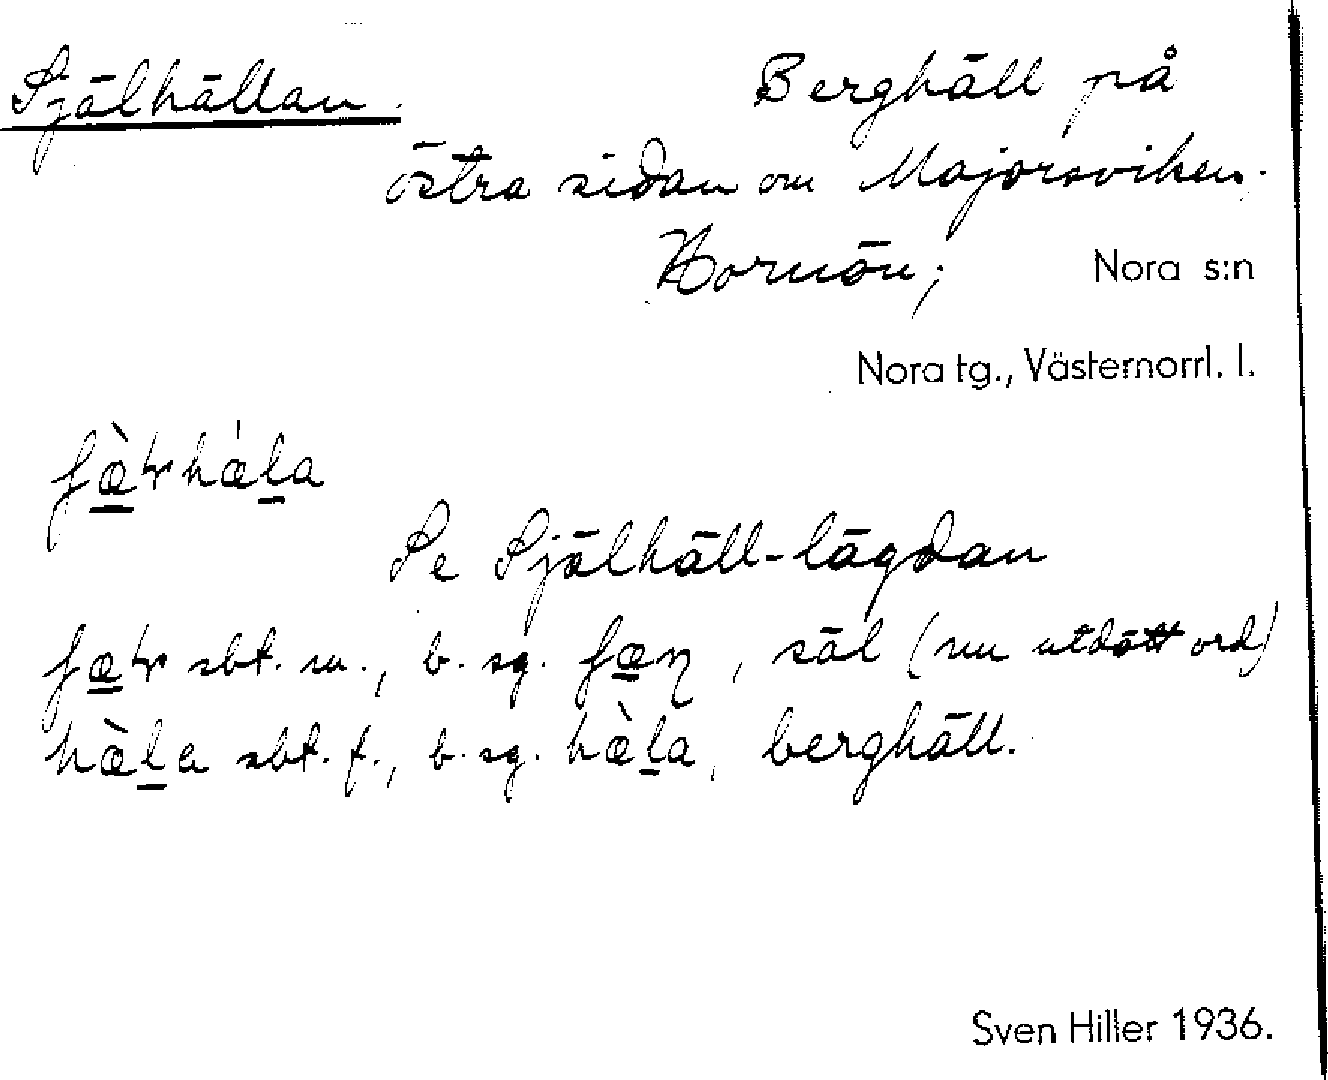 Själhällan. Berghäll på
östra sidan om Majorsviken.
Hornön; Nora s:n
Nora tg., Västernorrl. l.
Se Själhäll-lägdan
sbt. m., b. sg. , säl (nu utdött ord)
hæ̀la sbt. f., b. sg. hæ̀la, berghäll.
Sven Hiller 1936.